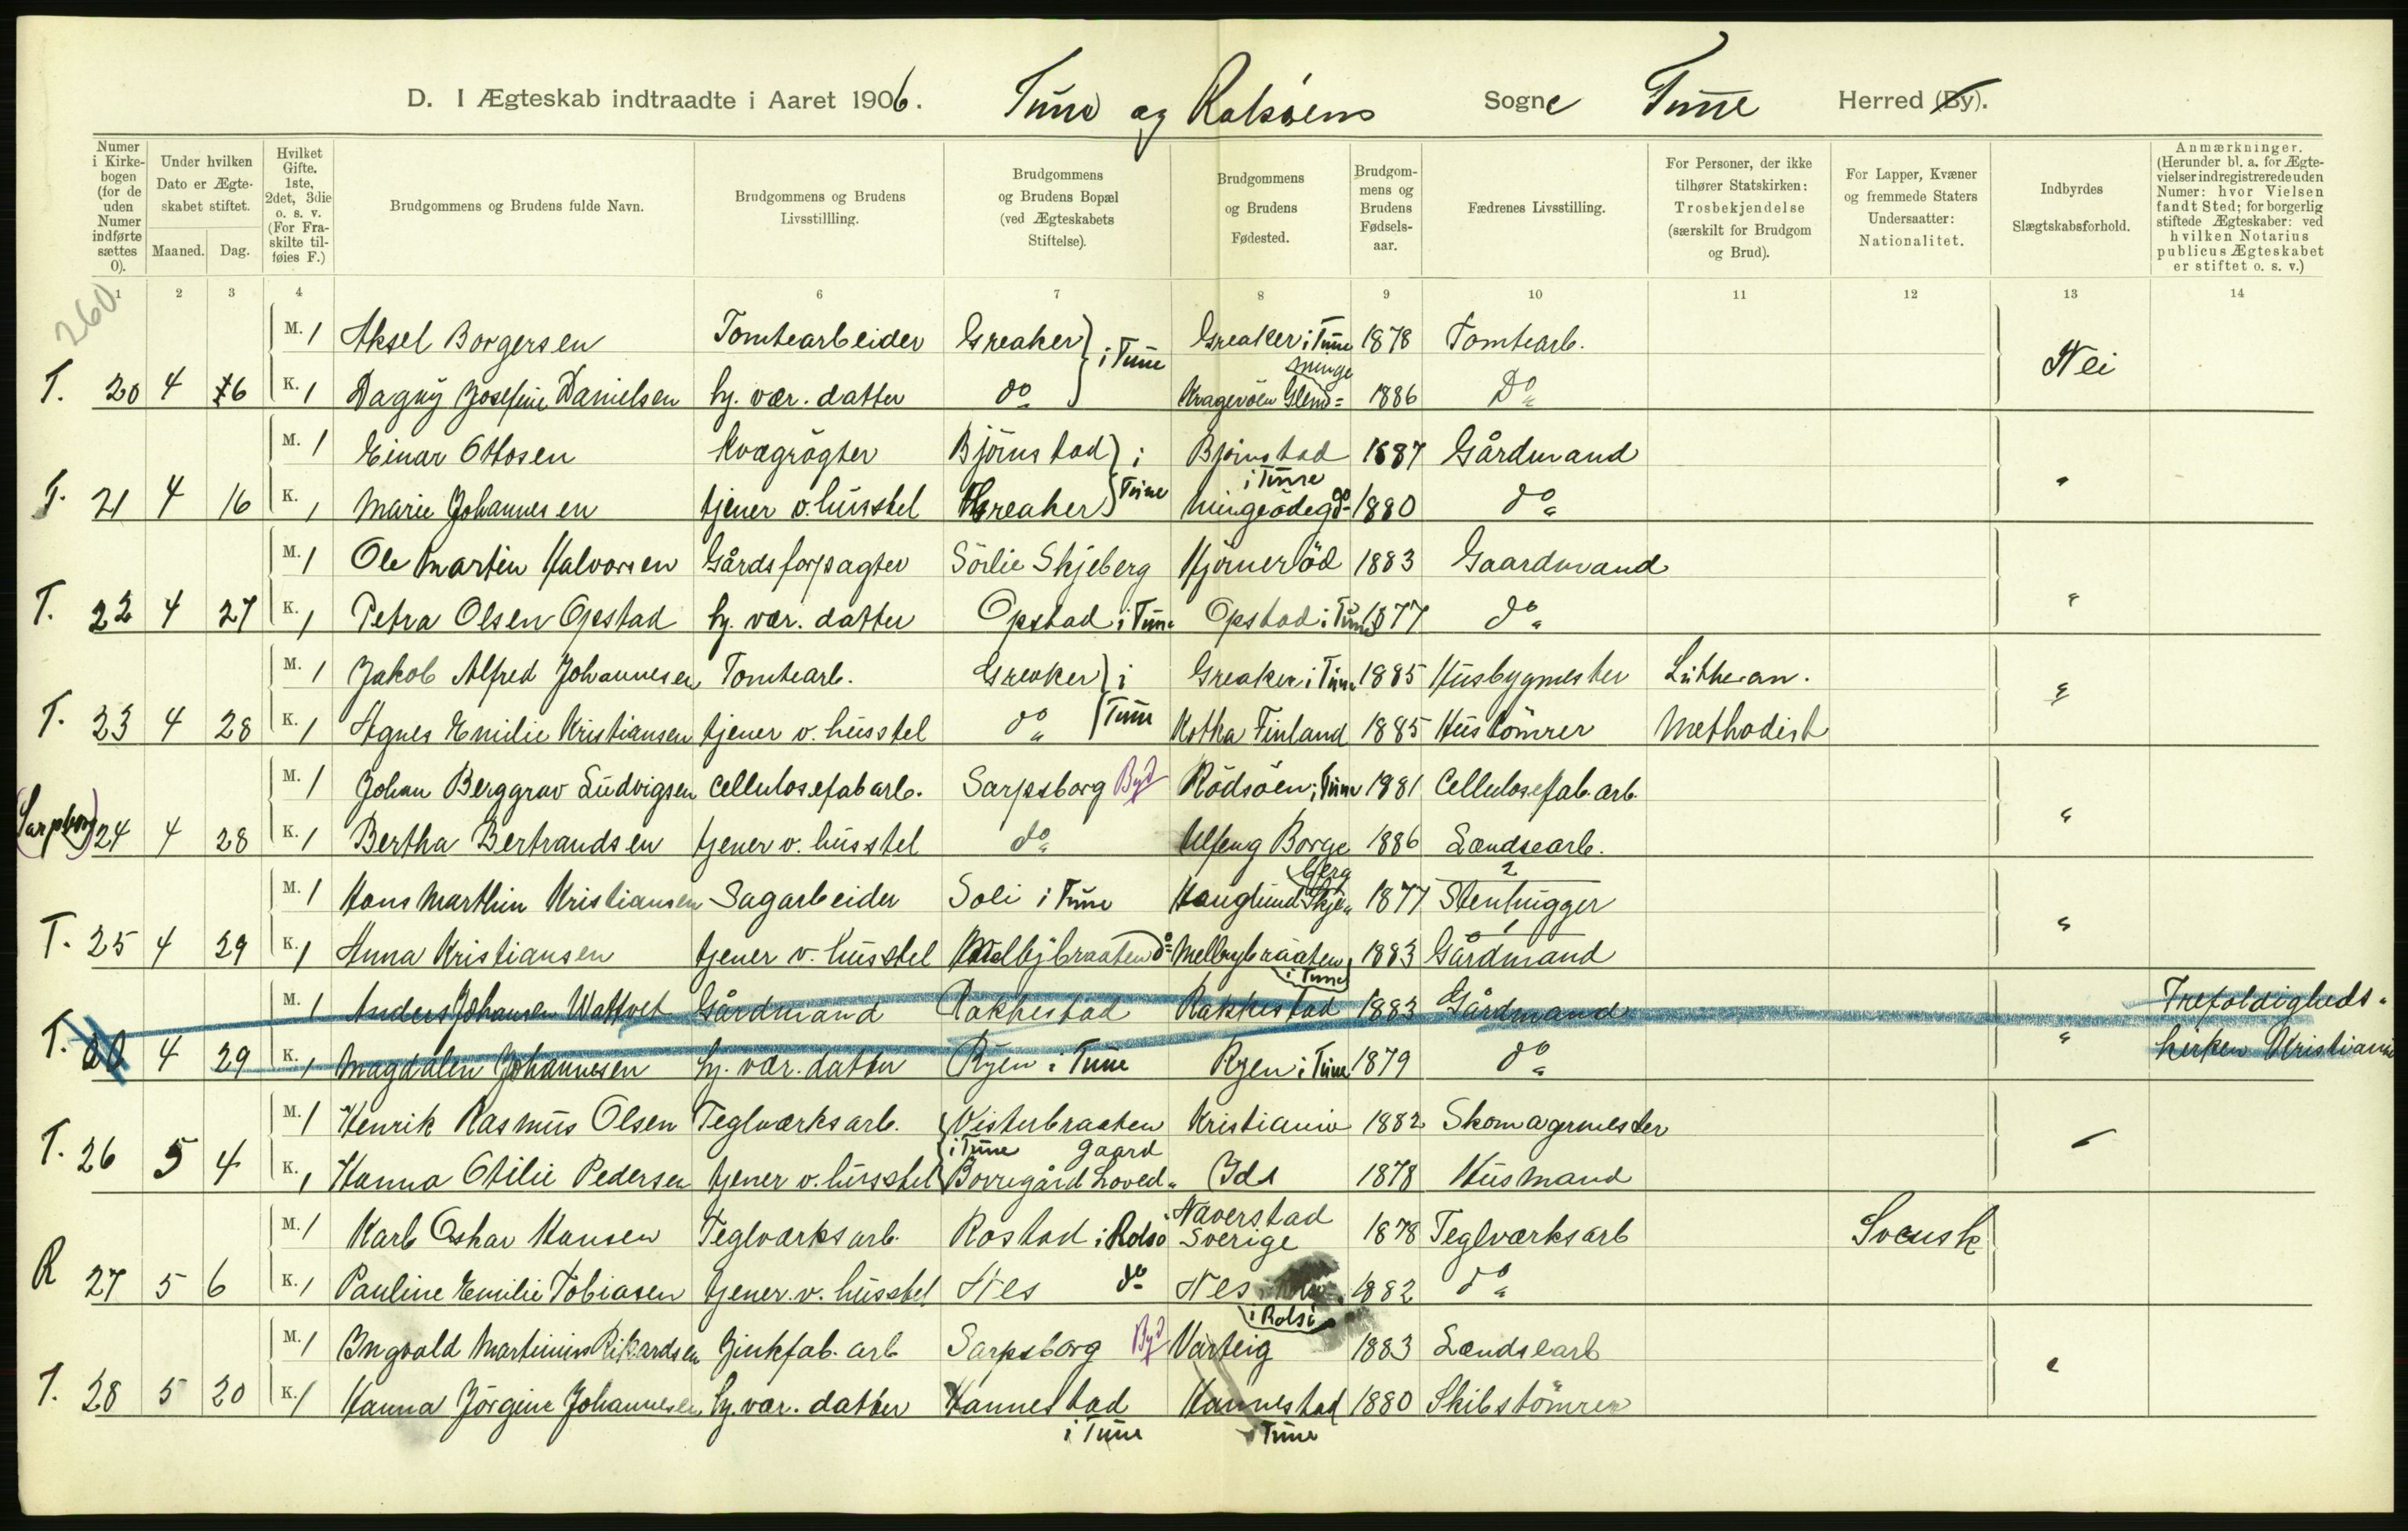 D. I Ægteskab indtraadte i Aaret 1906. Tune og Rolsöens Sogne Tune Herred (By).
Numer i Kirkebogen (for de uden Numer indførte sættes 0).
Under hvilken Dato er Ægteskabet stiftet.
Maaned. Dag.
Hvilket Gifte. 1ste, 2det, 3die o. s. v. (For Fraskilte tilføies F.)
Brudgommens og Brudens fulde Navn.
Brudgommens og Brudens Livsstillling.
Brudgommens og Brudens Bopæl (ved Ægteskabets Stiftelse).
Brudgommens og Brudens Fødested.
Brudgommens og Brudens Fødselsaar.
Fædrenes Livsstilling.
For Personer, der ikke tilhører Statskirken: Trosbekjendelse (særskilt for Brudgom og Brud).
For Lapper, Kvæner og fremmede Staters Undersaatter: Nationalitet.
Indbyrdes Slægtskabsforhold.
Anmærkninger. (Herunder bl. a. for Ægtevielser indregistrerede uden Numer: hvor Vielsen fandt Sted; for borgerlig stiftede Ægteskaber: ved hvilken Notarius publicus Ægteskabet er stiftet o. s. v.)
1 2 3 4 6 7 8 9 10 11 12 13 14
260
M. 1 Aksel Borgersen Tomtearbeider Greaker i Tune Greaker i Tune 1878 Tomtearb. Nei
T. 20 4 16 K. 1 Dagny Josefine Danielsen hj. vær. datter do Krageröen Glemminge 1886 Do
M. 1 Einar Ottosen Kvægrögter Björnstad i Tune Björnstad i Tune 1887 Gårdmand
T. 21 4 16 K. 1 Marie Johannesen tjener v. husstel Greaker Mingeödegd do 1880 do "
M. 1 Ole Martin Halvorsen Gårdsforpagter Sörlie Skjeberg Hjörneröd 1883 Gaardmand
T. 22 4 27 K. 1 Petra Olsen Opstad hj. vær. datter Opstad i Tune Opstad i Tune 1877 do "
M. 1 Jakob Alfred Johannesen Tomtearb. Greaker i Tune Greaker i Tune 1885 Husbygmester Lutheran.
T. 23 4 28 K. 1 Agnes Emilie Kristiansen tjener v. husstel do Kotka Finland 1885 Hustömrer Methodist "
M. 1 Johan Berggrav Ludvigsen Cellulosefabarb. Sarpsborg By Rödsöen i Tune 1881 Cellulosefab.arb.
(Sarpsborg) 24 4 28 K. 1 Bertha Bertrandsen tjener v. husstel do Ulfeng Borge 1886 Landsearb. "
M. 1 Hans Marthin Kristiansen Sagarbeider Soli i Tune Hauglund Skjeberg 1877 2 Stenhugger
T. 25 4 29 K. 1 Anna Kristiansen tjener v. husstel Melbybraaten do Melbybraaten i Tune 1883 1 Gårdmand "
M. 1 Anders Johansen Wattvet Gårdmand Rakkestad Rakkestad 1883 Gårdmand Trefoldigheds-
T. 4 29 K. 1 Magdalen Johannesen hj. vær. datter Ryen i Tune Ryen i Tune 1879 do " kirken Kristiania
M. 1 Henrik Rasmus Olsen Teglværksarb. Visterbraaten i Tune Kristiania 1882 Skomagermester
T. 26 5 4 K. 1 Hanna Otilie Pedersen tjener v. husstel Borregård Hovedgaard Ids 1878 Husmand "
M. 1 Karl Oskar Hansen Teglværksarb. Rostad i Rolsö Naverstad Sverige 1878 Teglværksarb Svensk
R 27 5 6 K. 1 Pauline Emilie Tobiasen tjener v. husstel Nes do Nes i Rolsö 1882 do
M. 1 Ingvald Martinius Rikardsen Zinkfab. arb Sarpsborg By Varteig 1883 Landsearb
T. 28 5 20 K. 1 Hanna Jörgine Johannesen hj. vær. datter Hannestad i Tune Hannestad i Tune 1880 Skibstömrer "